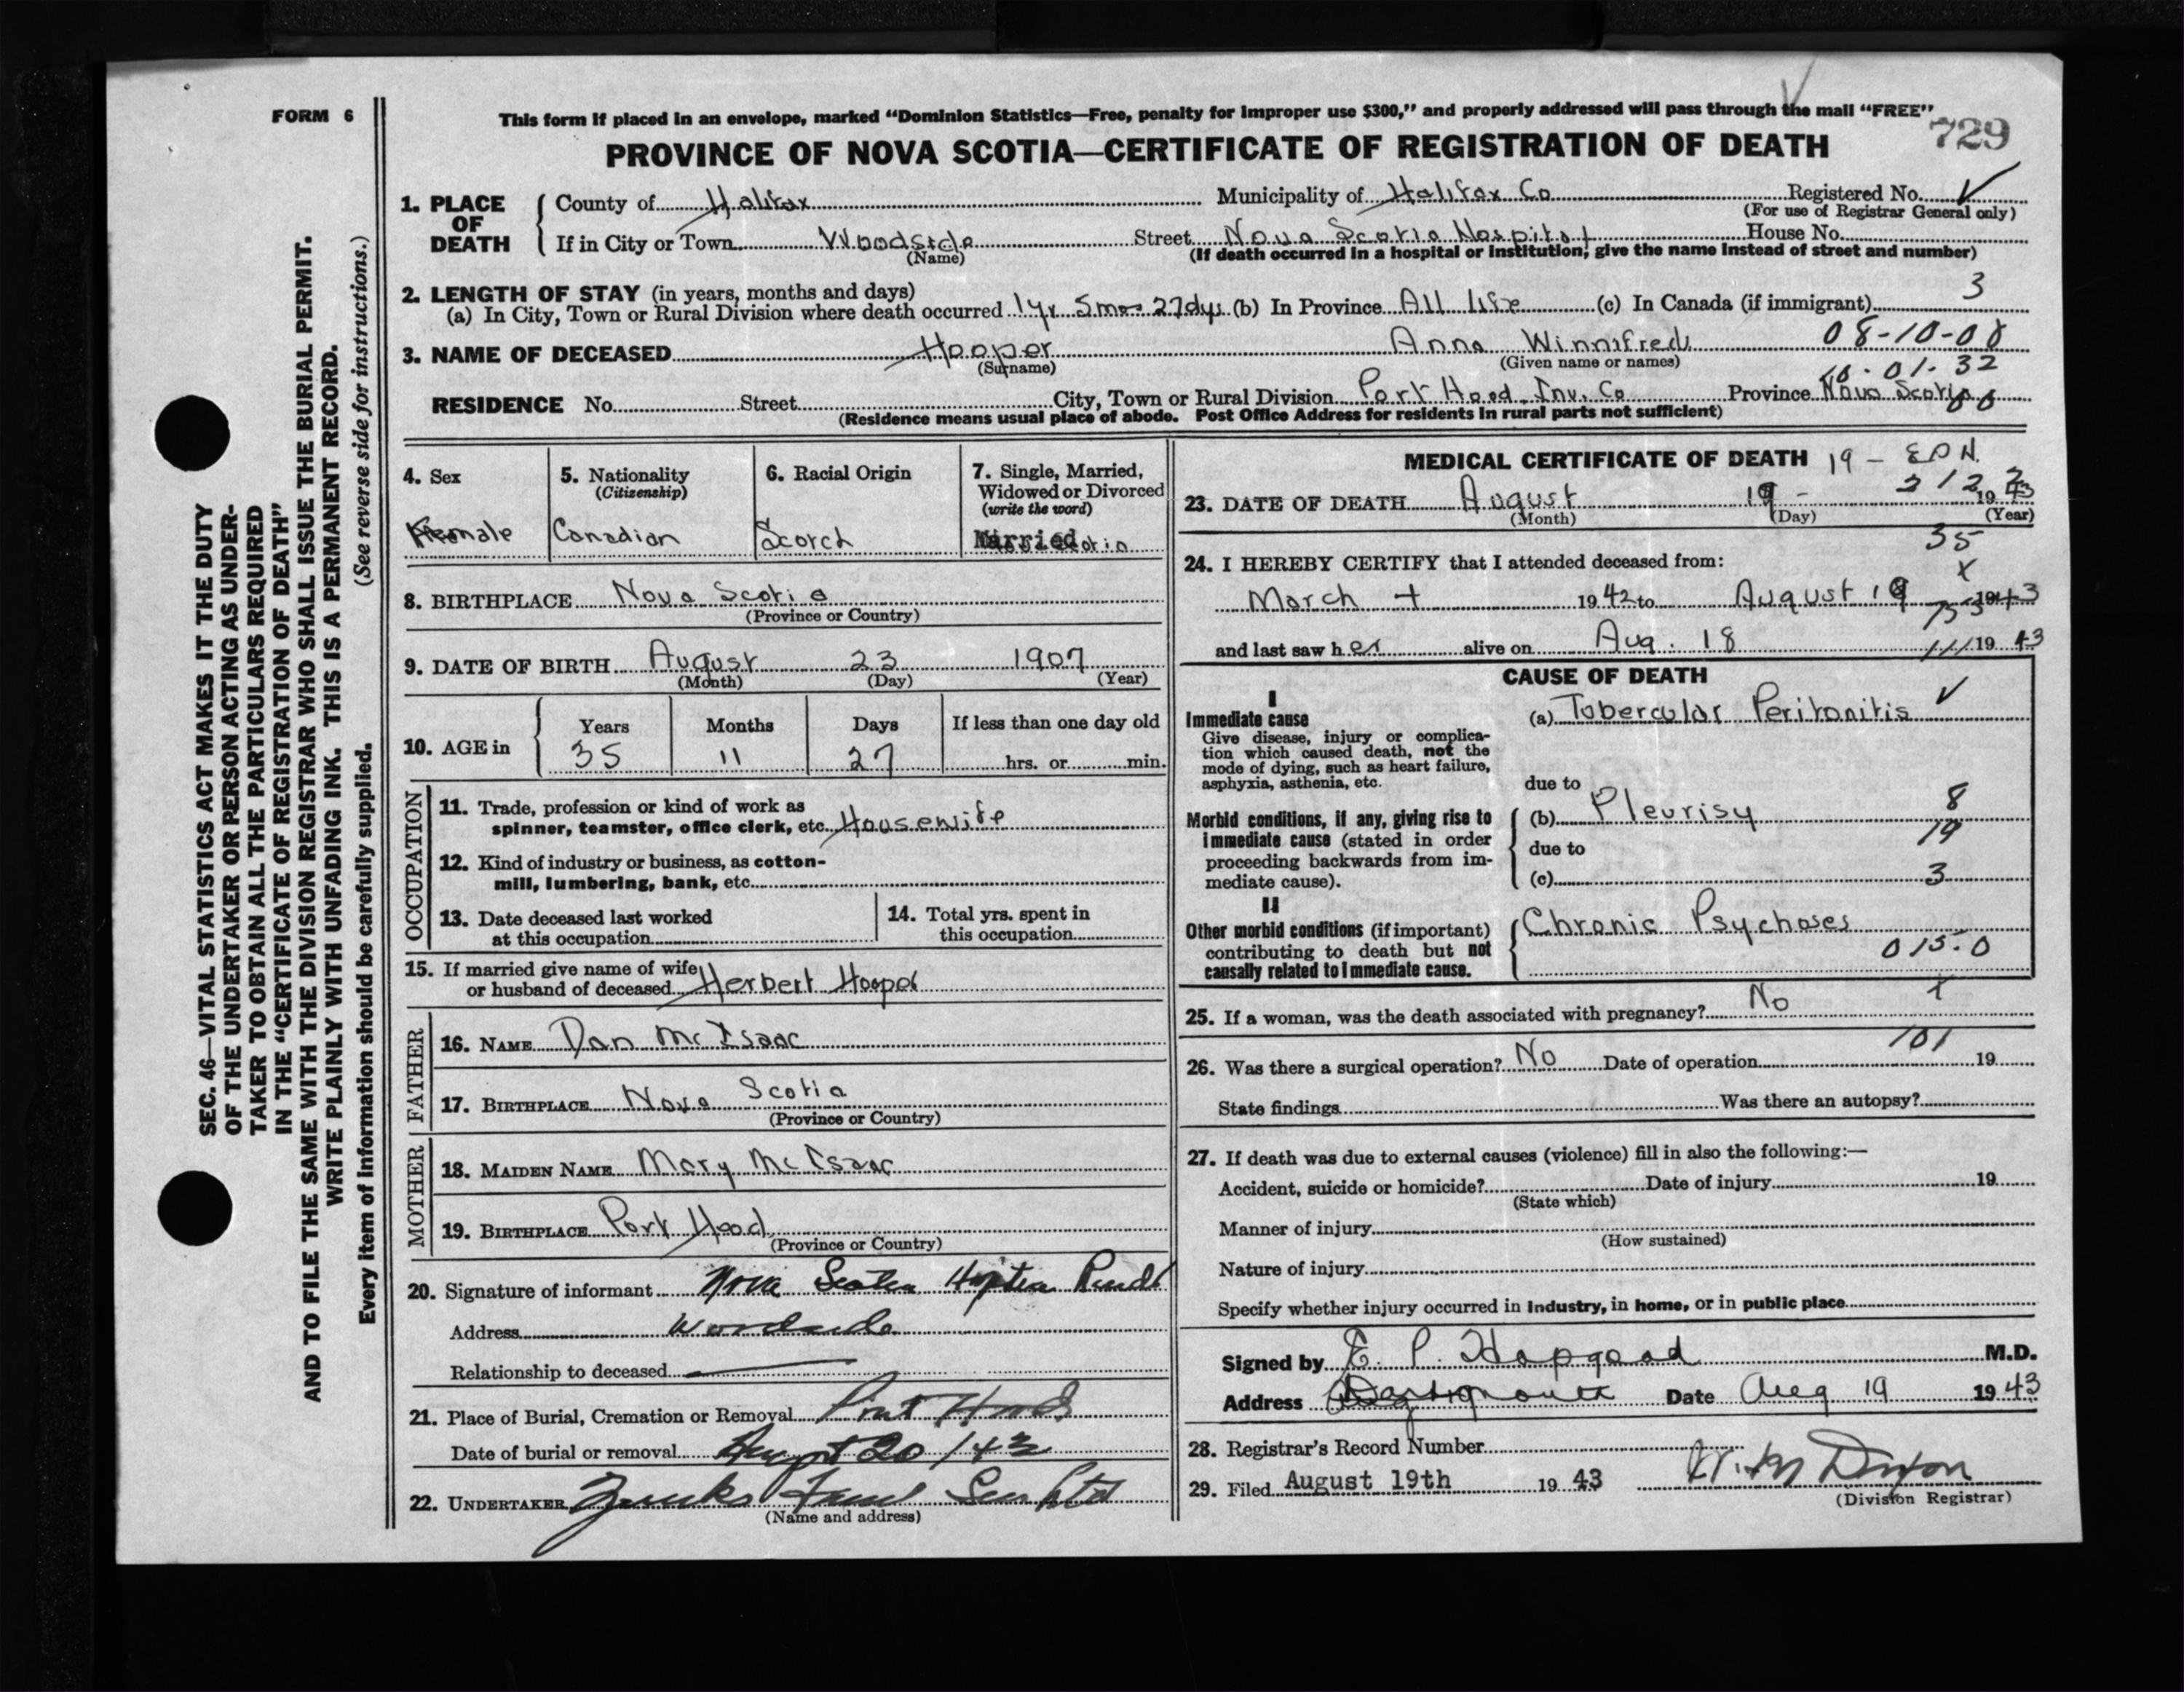 FORM 6
This form if placed in an envelope, marked “Dominion Statistics—Free, penalty for improper use $300,” and properly addressed will pass through the mail “FREE”
729
PROVINCE OF NOVA SCOTIA—CERTIFICATE OF REGISTRATION OF DEATH
1. PLACE OF DEATH
County of Halifax Municipality of Halifax Co Registered No.
(For use of Registrar General only)
If in City or Town Woodside Street Nova Scotia Hospital House No.
(Name) (If death occurred in a hospital or institution, give the name instead of street and number)
2. LENGTH OF STAY (in years, months and days) 3
(a) In City, Town or Rural Division where death occurred 1 yr 5 mos 27 dys (b) In Province All Life (c) In Canada (if immigrant)
3. NAME OF DECEASED Hooper Anna Winnifred 08-10-08
(Surname) (Given name or names)
10-01-32
RESIDENCE No. Street City, Town or Rural Division Port Hood Inv. Co Province Nova Scotia
(Residence means usual place of abode. Post Office Address for residents in rural parts not sufficient)
4. Sex 5. Nationality 6. Racial Origin 7. Single, Married,
(Citizenship) Widowed or Divorced
(write the word)
Female Canadian Scotch Married
8. BIRTHPLACE Nova Scotia
(Province or Country)
9. DATE OF BIRTH August 23 1907
(Month) (Day) (Year)
10. AGE in Years Months Days If less than one day old
35 11 27 hrs. or min.
OCCUPATION
11. Trade, profession or kind of work as
spinner, teamster, office clerk, etc. Housewife
12. Kind of industry or business, as cotton-
mill, lumbering, bank, etc.
13. Date deceased last worked
at this occupation
14. Total yrs. spent in
this occupation
15. If married give name of wife
or husband of deceased Herbert Hooper
FATHER
16. NAME Dan McIsaac
17. BIRTHPLACE Nova Scotia
(Province or Country)
MOTHER
18. MAIDEN NAME Mary McIsaac
19. BIRTHPLACE Port Hood
(Province or Country)
20. Signature of informant Nova Scotia Hospital
Address Woodside
Relationship to deceased
21. Place of Burial, Cremation or Removal Port Hood
Date of burial or removal August 20/43
22. UNDERTAKER
(Name and address)
MEDICAL CERTIFICATE OF DEATH 19 - E P H.
212
23. DATE OF DEATH August 19 - 1943
(Month) (Day) (Year)
35
24. I HEREBY CERTIFY that I attended deceased from:
March + 1942 to August 19 1943
and last saw her alive on Aug. 18 1943
CAUSE OF DEATH
I
Immediate cause
Give disease, injury or complica-
tion which caused death, not the
mode of dying, such as heart failure,
asphyxia, asthenia, etc.
(a) Tubercular Peritonitis
due to
Morbid conditions, if any, giving rise to
immediate cause (stated in order
proceeding backwards from im-
mediate cause).
(b) Pleurisy 8
due to 19
(c) 3
II
Other morbid conditions (if important)
contributing to death but not
causally related to immediate cause.
Chronic Psychoses
015.0
25. If a woman, was the death associated with pregnancy? No
101
26. Was there a surgical operation? No Date of operation 19
State findings Was there an autopsy?
27. If death was due to external causes (violence) fill in also the following:—
Accident, suicide or homicide? Date of injury 19
(State which)
Manner of injury
(How sustained)
Nature of injury
Specify whether injury occurred in industry, in home, or in public place
Signed by E. P. Hopgood M.D.
Address Dartmouth Date Aug 19 1943
28. Registrar's Record Number
29. Filed August 19th 1943
(Division Registrar)
SEC. 46—VITAL STATISTICS ACT MAKES IT THE DUTY
OF THE UNDERTAKER OR PERSON ACTING AS UNDER-
TAKER TO OBTAIN ALL THE PARTICULARS REQUIRED
IN THE “CERTIFICATE OF REGISTRATION OF DEATH”
AND TO FILE THE SAME WITH THE DIVISION REGISTRAR WHO SHALL ISSUE THE BURIAL PERMIT.
WRITE PLAINLY WITH UNFADING INK. THIS IS A PERMANENT RECORD.
Every item of information should be carefully supplied. (See reverse side for instructions.)